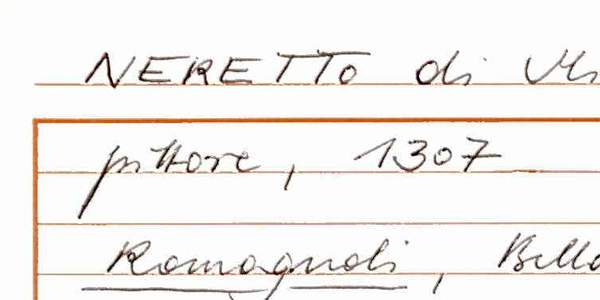 NERETTO di
pittore, 1307
Romagnoli, Bella